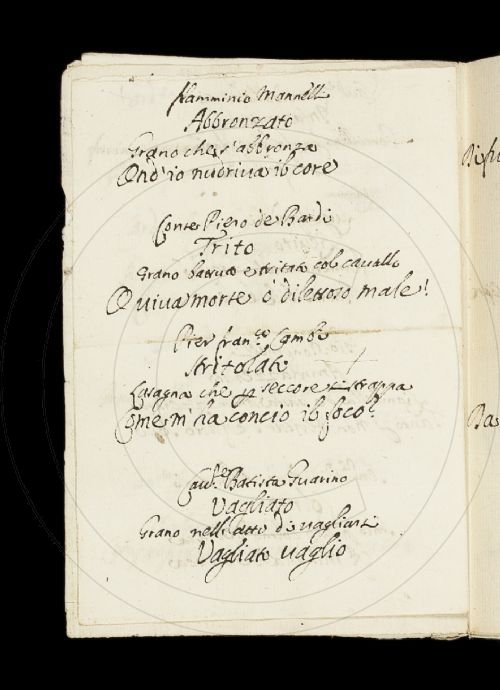 Flamminio Mannelli
Abbronzato
Grano che s'abbronza
Ond'io nudriva il core
Conte Piero de Bardi
Trito
Grano battuto e tritato col cavallo
O viva morte ò dilettoso male!
Pier fran.co Cambi
Stritolato
Lasagna che seccore strappa
Come m'ha concio il foco
Cav.re Batista Guarino
Vagliato
Grano nell'atto di vagliarsi
Vagliato vaglio
Ba